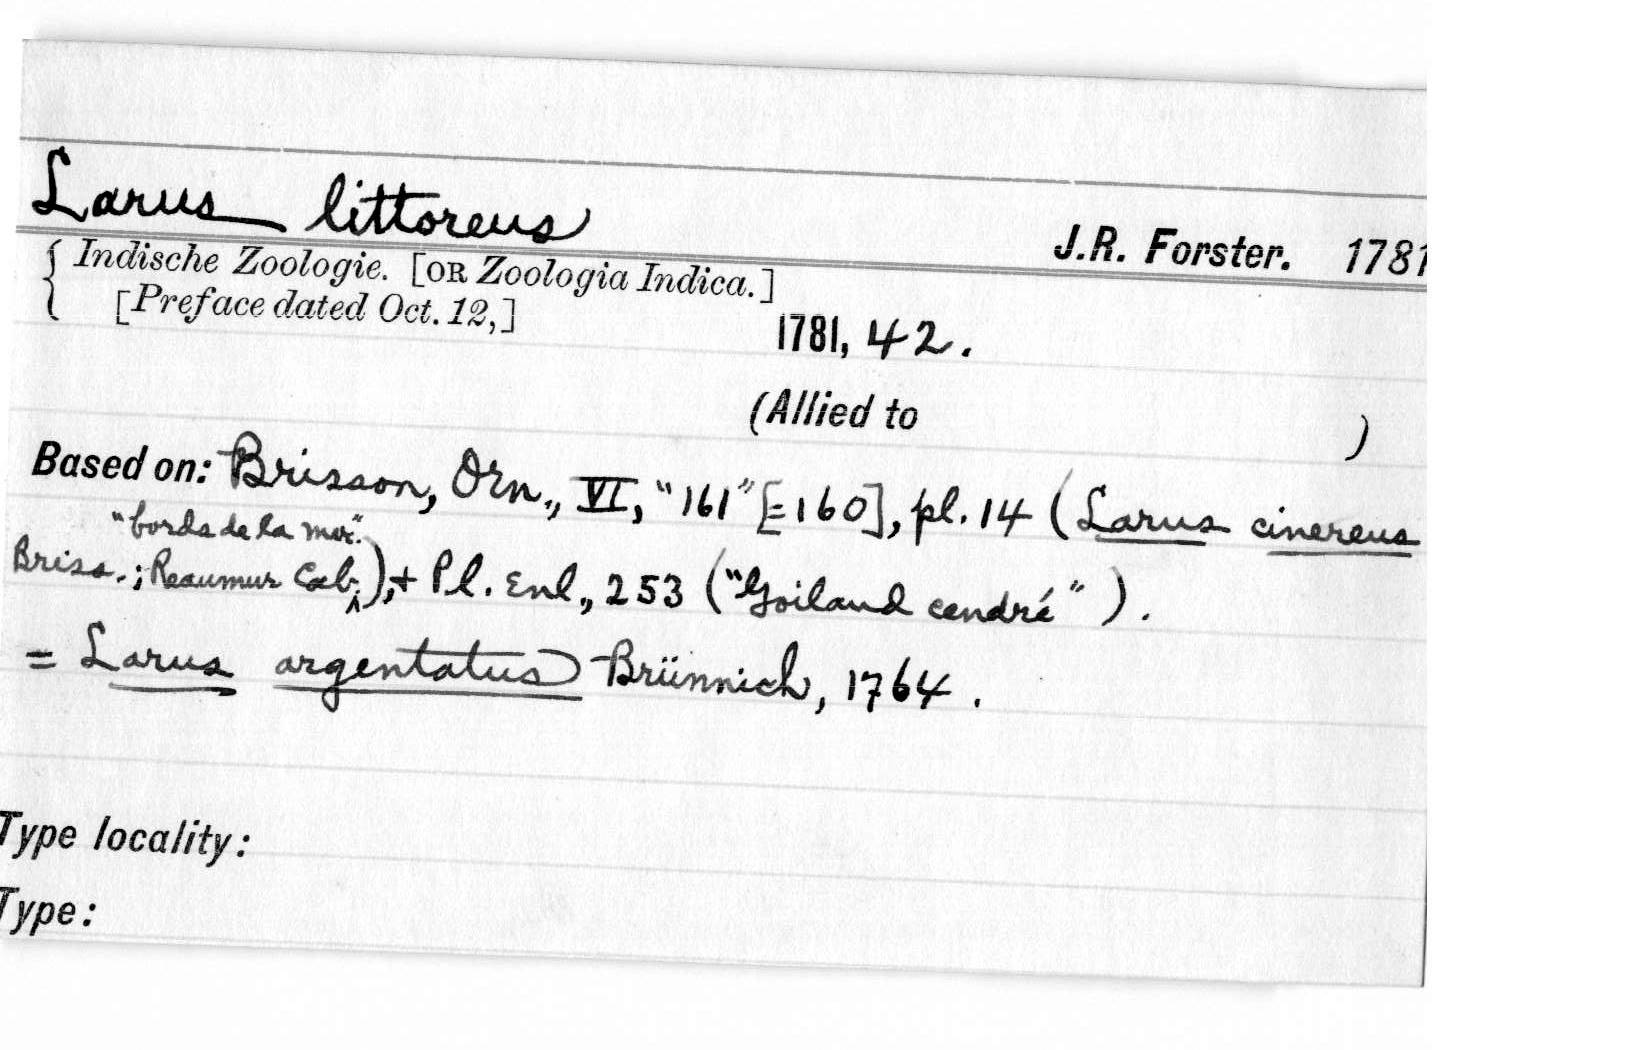 Larus littoreus
J.R. Forster. 1781
{ Indische Zoologie. [OR Zoologia Indica.]
[Preface dated Oct. 12,]
1781, 42.
(Allied to )
Based on: Brisson, Orn., VI, "161" [=160], pl. 14 (Larus cinereus
"bords de la mer".
Briss.; Reaumur Cab.), + Pl. Enl., 253 ("Goiland cendré").
= Larus argentatus Brünnich, 1764.
Type locality:
Type: